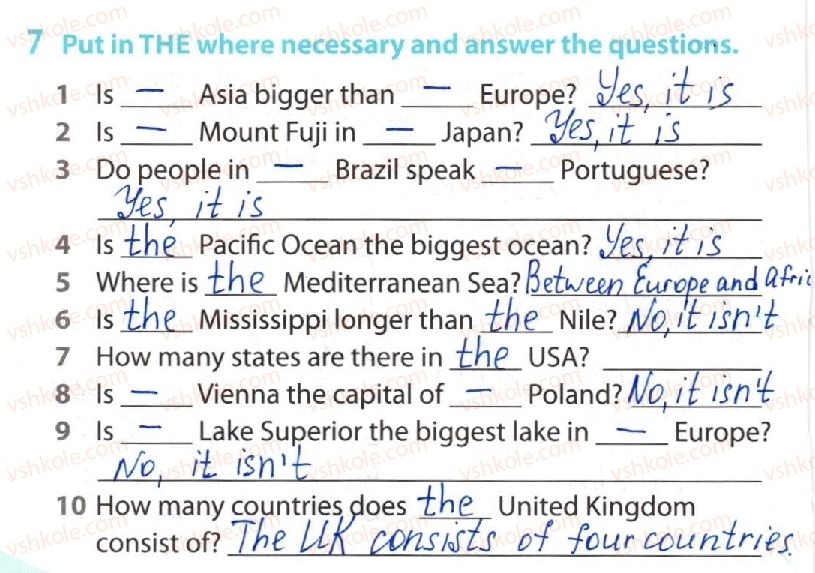 7 Put in THE where necessary and answer the questions.
1 Is — Asia bigger than — Europe? Yes, it is
2 Is — Mount Fuji in — Japan? Yes, it is
3 Do people in — Brazil speak — Portuguese?
Yes, it is
4 Is the Pacific Ocean the biggest ocean? Yes, it is
5 Where is the Mediterranean Sea? Between Europe and Afric
6 Is the Mississippi longer than the Nile? No, it isn't
7 How many states are there in the USA?
8 Is — Vienna the capital of — Poland? No, it isn't
9 Is — Lake Superior the biggest lake in — Europe?
No, it isn't
10 How many countries does the United Kingdom
consist of? The UK consists of four countries.